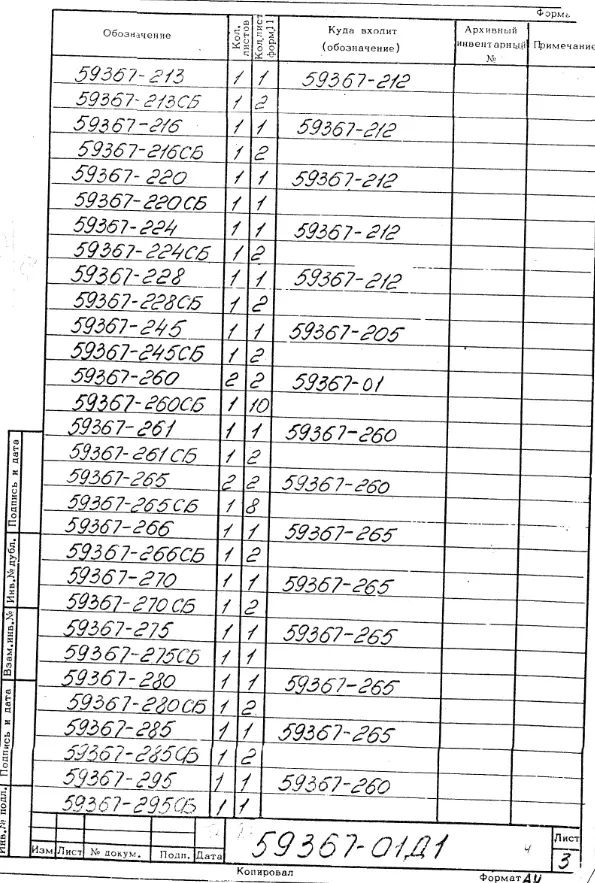 Форма
Обозначение Кол. листов Кол.лист форм.11 Куда входит (обозначение) Архивный инвентарный № Примечание
59367-213 1 1 59367-212
59367-213СБ 1 2
59367-216 1 1 59367-212
59367-216СБ 1 2
59367-220 1 1 59367-212
59367-220СБ 1 1
59367-224 1 1 59367-212
59367-224СБ 1 2
59367-228 1 1 59367-212
59367-228СБ 1 2
59367-245 1 1 59367-205
59367-245СБ 1 2
59367-260 2 2 59367-01
59367-260СБ 1 10
59367-261 1 1 59367-260
59367-261СБ 1 2
59367-265 2 2 59367-260
59367-265СБ 1 8
59367-266 1 1 59367-265
59367-266СБ 1 2
59367-270 1 1 59367-265
59367-270СБ 1 2
59367-275 1 1 59367-265
59367-275СБ 1 1
59367-280 1 1 59367-265
59367-280СБ 1 2
59367-285 1 1 59367-265
59367-285СБ 1 2
59367-295 1 1 59367-260
59367-295СБ 1 1
Подпись и дата
Инв.№ дубл.
Взам.инв.№
Подпись и дата
Инв.№ подл.
Изм Лист № докум. Подп. Дата
59367-01Д1
4
Лист
3
Копировал
Формат А4